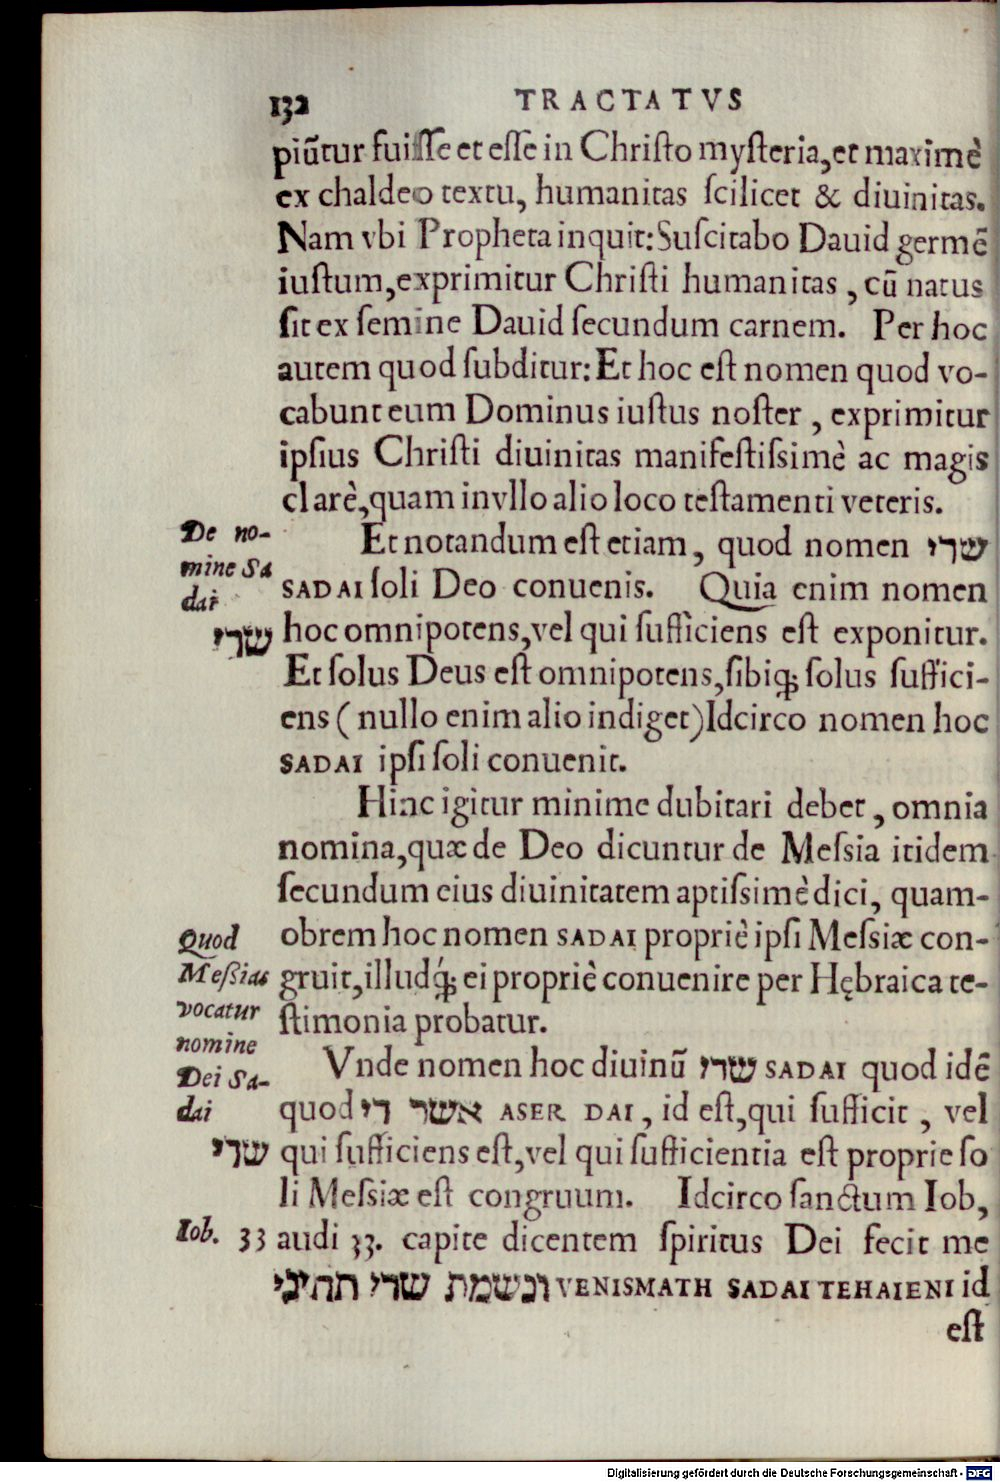 132 TRACTATVS
piũtur fuiſſe et eſſe in Chriſto myſteria, et maximè
ex chaldeo textu, humanitas ſcilicet & diuinitas.
Nam vbi Propheta inquit: Suſcitabo Dauid germẽ
iuſtum, exprimitur Chriſti humanitas, cũ natus
ſit ex ſemine Dauid ſecundum carnem. Per hoc
autem quod ſubditur: Et hoc eſt nomen quod vo-
cabunt eum Dominus iuſtus noſter, exprimitur
ipſius Chriſti diuinitas manifeſtiſsimè ac magis
clarè, quam in vllo alio loco teſtamenti veteris.
De no-
mine Sa
dai
שדי
Et notandum eſt etiam, quod nomen שדי
SADAI ſoli Deo conuenis. Quia enim nomen
hoc omnipotens, vel qui ſufficiens eſt exponitur.
Et ſolus Deus eſt omnipotens, ſibiq́; ſolus ſuffici-
ens (nullo enim alio indiget) Idcirco nomen hoc
SADAI ipſi ſoli conuenit.
Hinc igitur minime dubitari debet, omnia
nomina, quæ de Deo dicuntur de Meſsia itidem
ſecundum eius diuinitatem aptiſsimè dici, quam-
obrem hoc nomen SADAI propriè ipſi Meſsiæ con-
gruit, illudq́; ei propriè conuenire per Hębraica te-
ſtimonia probatur.
Quod
Meſsias
vocatur
nomine
Dei Sa-
dai
שדי
Vnde nomen hoc diuinũ שדי SADAI quod idẽ
quod אשר די ASER DAI, id eſt, qui ſufficit, vel
qui ſufficiens eſt, vel qui ſufficientia eſt proprie ſo
li Meſsiæ eſt congruum. Idcirco ſanctum Iob,
Iob. 33
audi 33. capite dicentem ſpiritus Dei fecit me
ונשמת שדי תחיני VENISMATH SADAI TEHAIENI id
eſt
Digitalisierung gefördert durch die Deutsche Forschungsgemeinschaft - DFG